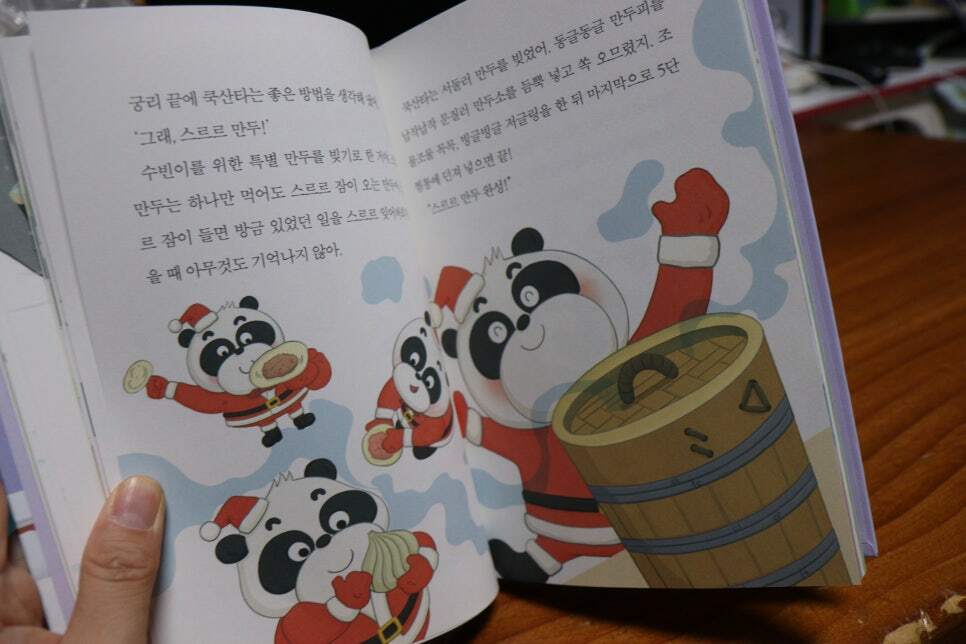 궁리 끝에 쿡산타는 좋은 방법을 생각해
'그래, 스르르 만두!'
수빈이를 위한 특별 만두를 빚기로 한
만두는 하나만 먹어도 스르르 잠이 오는
르 잠이 들면 방금 있었던 일을 스르르
을 때 아무것도 기억나지 않아.
쿡산타는 서둘러 만두를 빚었어. 동글동글 만두피를
납작납작 문질러 만두소를 듬뿍 넣고 쏙 오므렸지. 조
물조물 톡톡. 빙글빙글 저글링을 한 뒤 마지막으로 5단
찜통에 던져 넣으면 끝!
"스르르 만두 완성!"